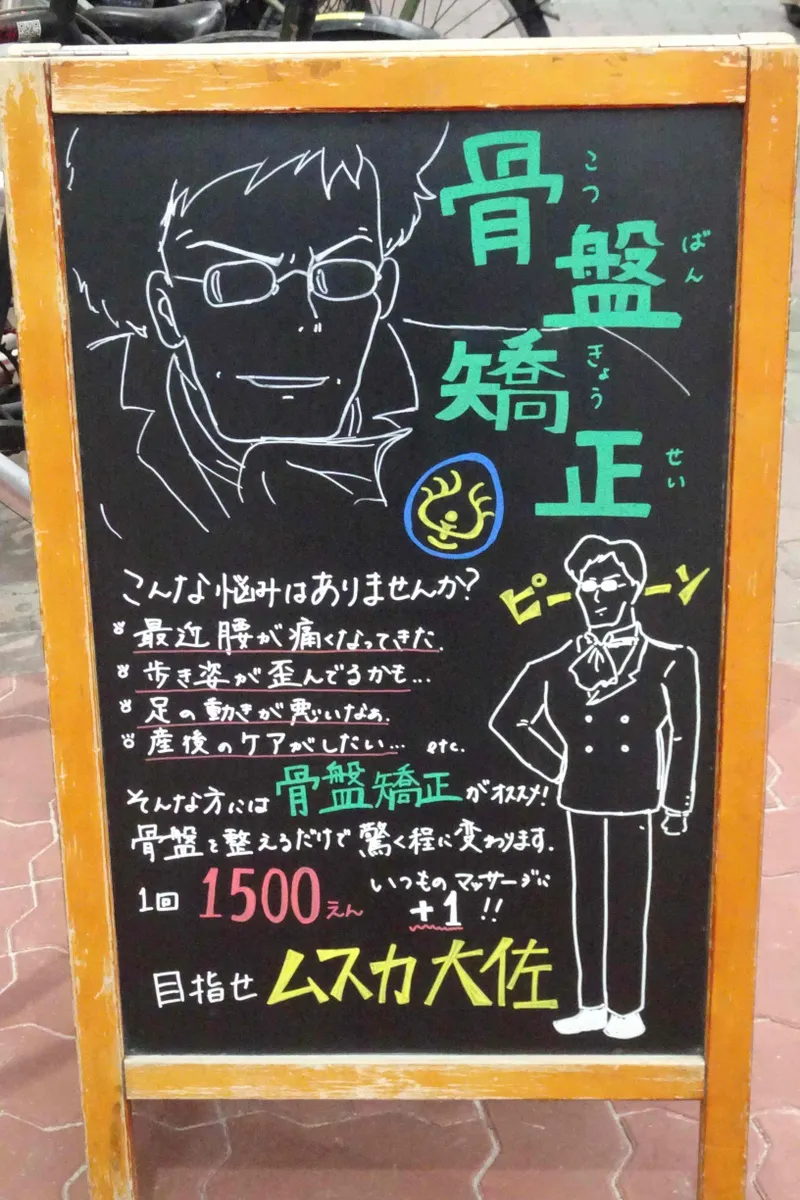 骨盤矯正
こつばんきょうせい
こんな悩みはありませんか?
最近腰が痛くなってきた。
歩き姿が歪んでるかも...
足の動きが悪いなぁ。
産後のケアがしたい... etc.
ピーーン
そんな方には骨盤矯正がオススメ!
骨盤を整えるだけで驚く程に変わります。
1回 1500えん いつものマッサージに
+1!!
目指せ ムスカ大佐